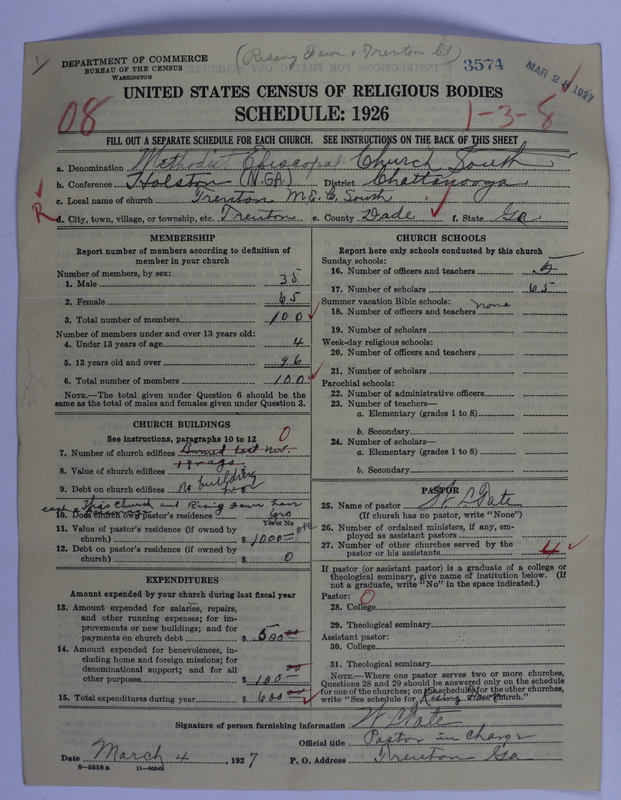 (Rising Fawn & Trenton Ct)
DEPARTMENT OF COMMERCE
BUREAU OF THE CENSUS
WASHINGTON
3574
MAR 25 1927
UNITED STATES CENSUS OF RELIGIOUS BODIES
SCHEDULE: 1926
08
1-3-8
FILL OUT A SEPARATE SCHEDULE FOR EACH CHURCH. SEE INSTRUCTIONS ON THE BACK OF THIS SHEET
a. Denomination Methodist Episcopal Church South
b. Conference Holston (N.GA.) District Chattanooga
c. Local name of church Trenton M.E.C. South
R
d. City, town, village, or township, etc. Trenton e. County Dade f. State Ga
MEMBERSHIP
Report number of members according to definition of
member in your church
Number of members, by sex:
1. Male 35
2. Female 65
3. Total number of members 100
Number of members under and over 13 years old:
4. Under 13 years of age 4
5. 13 years old and over 96
6. Total number of members 100
NOTE.—The total given under Question 6 should be the
same as the total of males and females given under Question 3.
CHURCH BUILDINGS
See instructions, paragraphs 10 to 12
0
7. Number of church edifices Burned last Nov.
8. Value of church edifices $
9. Debt on church edifices no building now
This church and Rising Fawn have
10. Does church own pastor's residence?
Yes or No
11. Value of pastor's residence (if owned by
church) $ 1000
12. Debt on pastor's residence (if owned by
church) $ 0
EXPENDITURES
Amount expended by your church during last fiscal year
13. Amount expended for salaries, repairs,
and other running expenses; for im-
provements or new buildings; and for
payments on church debt $ 500 00
14. Amount expended for benevolences, in-
cluding home and foreign missions; for
denominational support; and for all
other purposes $ 100 00
15. Total expenditures during year $ 600 00
CHURCH SCHOOLS
Report here only schools conducted by this church
Sunday schools:
16. Number of officers and teachers 5
17. Number of scholars 65
Summer vacation Bible schools: none
18. Number of officers and teachers
19. Number of scholars
Week-day religious schools:
20. Number of officers and teachers
21. Number of scholars
Parochial schools:
22. Number of administrative officers
23. Number of teachers—
a. Elementary (grades 1 to 8)
b. Secondary
24. Number of scholars—
a. Elementary (grades 1 to 8)
b. Secondary
PASTOR
25. Name of pastor
(If church has no pastor, write "None")
26. Number of ordained ministers, if any, em-
ployed as assistant pastors
27. Number of other churches served by the
pastor or his assistants 4
If pastor (or assistant pastor) is a graduate of a college or
theological seminary, give name of institution below. (If
not a graduate, write "No" in the space indicated.)
Pastor: 0
28. College
29. Theological seminary
Assistant pastor:
30. College
31. Theological seminary
NOTE.—Where one pastor serves two or more churches,
Questions 28 and 29 should be answered only on the schedule
for one of the churches; on the schedules for the other churches,
write "See schedule for Rising Fawn church."
Signature of person furnishing information
Official title Pastor in charge
Date March 4, 1927 P. O. Address Trenton Ga
8-5518 a